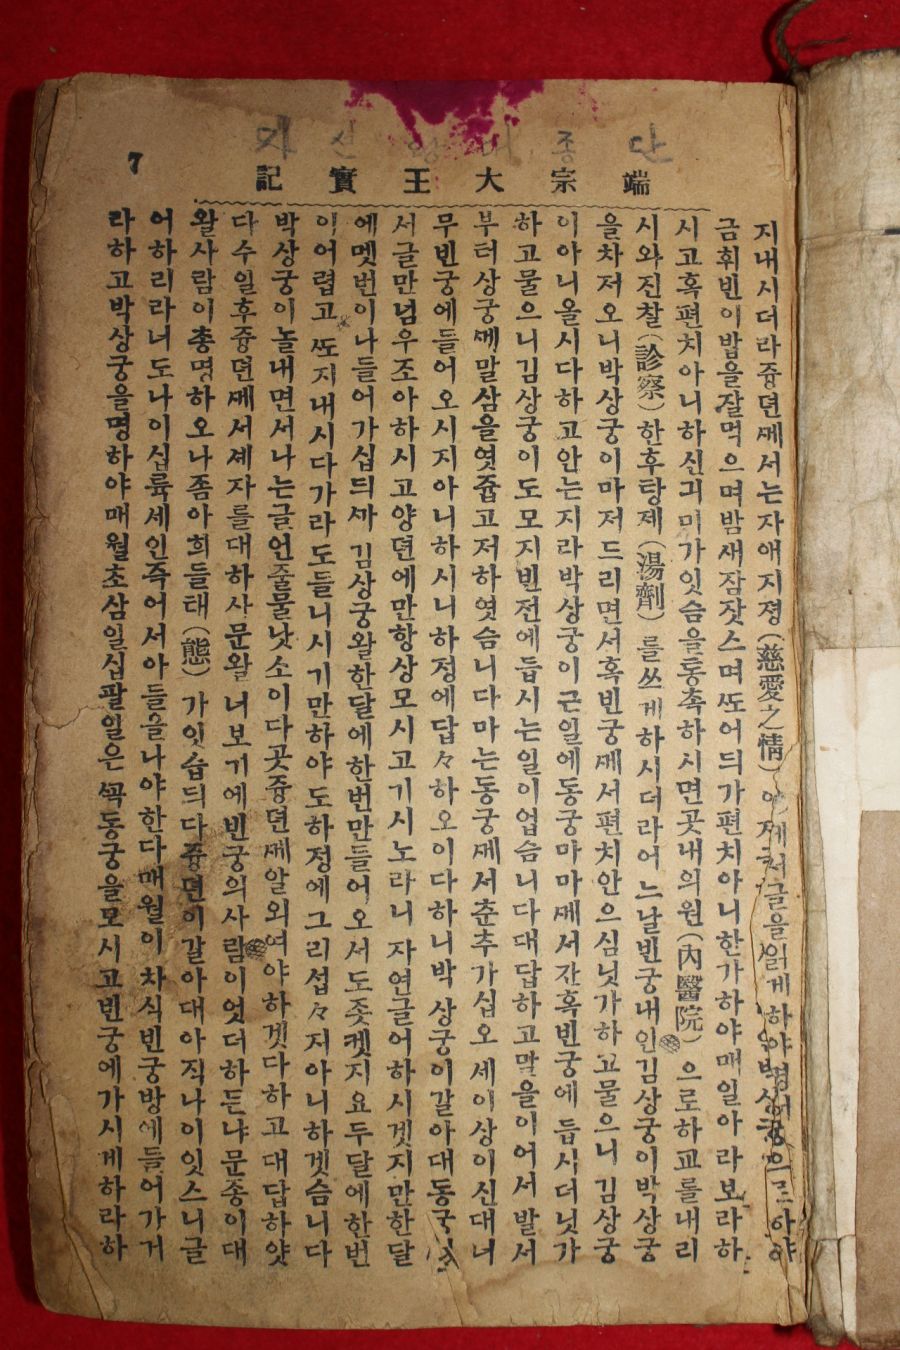 단종대왕실기
端宗大王實記
7
지내시더라즁뎐ᄭᅦ서는자애지졍(慈愛之情)에 글을읽게하야
금휘빈이밥을잘먹으며밤새잠잣스며ᄯᅩ어듸가편치아니한가하야매일아라보라하
시고혹편치아니하신긔미가잇슴을통촉하시면곳내의원(內醫院)으로하교를내리
시와진찰(診察)한후탕졔(湯劑)를쓰게하시더라어느날빈궁내인김상궁이박상궁
을차저오니박상궁이마저드리면서혹빈궁ᄭᅦ서편치안으심닛가하고물으니김상궁
이아니올시다하고안는지라박상궁이근일에동궁마마ᄭᅦ서잔혹빈궁에듭시더닛가
하고물으니김상궁이도모지빈전에듭시는일이업슴니다대답하고말을이어서발서
부터상궁ᄭᅦ말삼을엿쥽고저하엿슴니다마는동궁ᄭᅦ서춘추가십오세이상이신대너
무빈궁에들어오시지아니하시니하정에답々하오이다하니박상궁이갈아대동궁
서글만넘우조아하시고양뎐에만항상모시고기시노라니자연글어하시겟지만한달
에멧번이나들어가십듸ᄭᅡ김상궁왈한달에한번만들어오서도좃켓지요두달에한번
이어렵고ᄯᅩ지내시다가라도들니시기만하야도하정에그리섭々저아니하겟슴니다
박상궁이놀내면서나는글언줄물낫소이다곳즁뎐ᄭᅦ알외여야하겟다하고대답하얏
다수일후즁뎐ᄭᅦ서셰자를대하사문왈너보기에빈궁의사람이엇더하든냐문종이대
왈사람이총명하오나좀아희들태(態)가잇습듸다즁뎐이갈아대아직나이잇스니글
어하리라너도나이십륙세인즉어서아들을나야한다매월이차식빈궁방에들어가거
라하고박상궁을명하야매월초삼일십팔일은ᄭᅩᆨ동궁을모시고빈궁에가시게하라하